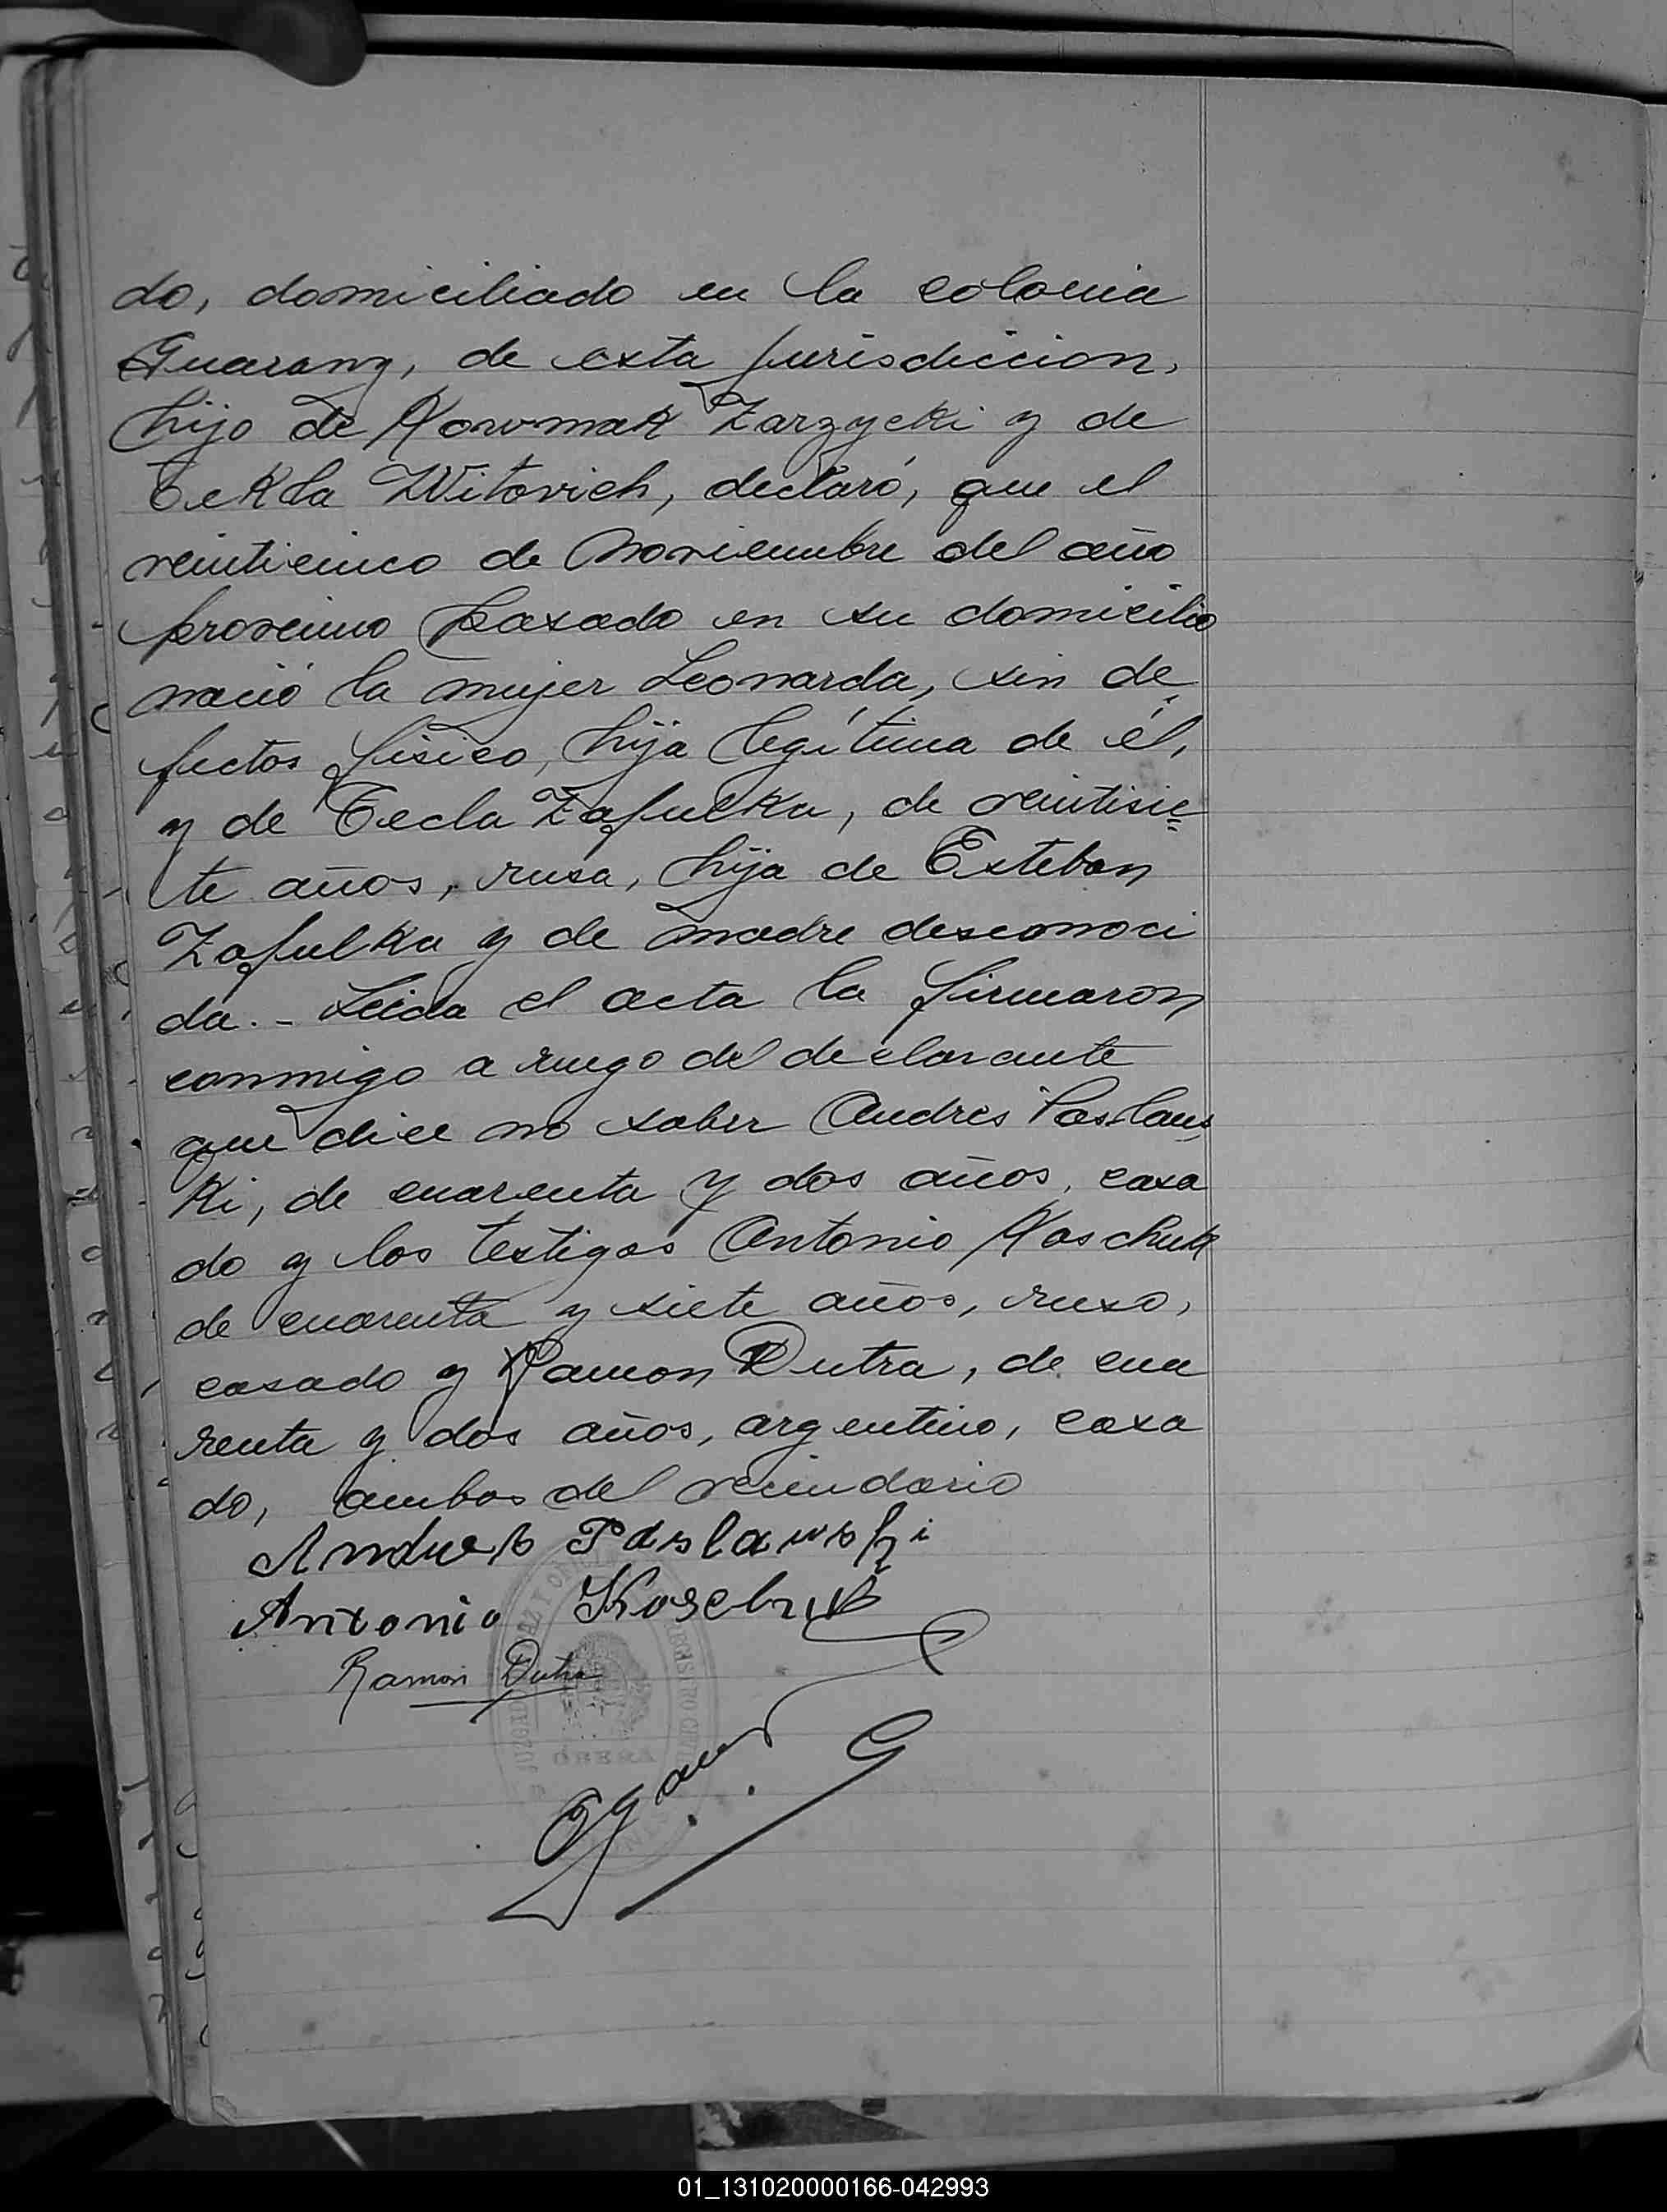 do, domiciliado en la colonia
Guarany, de esta jurisdiccion,
hijo de Kowmak Zarzycki y de
Tekla Witovich, declaró, que el
veinticinco de Noviembre del año
proximo pasado en su domicilio
nació la mujer Leonarda, sin de
fectos fisico, hija legítima de él,
y de Tecla Zafulka, de veintisie=
te años, rusa, hija de Esteban
Zafulka y de madre desconoci
da. - Leida el acta la firmaron
conmigo a ruego del declarante
que dice no saber Andres Paslaus
ki, de cuarenta y dos años, casa
do y los testigos Antonio Koschuk
de cuarenta y siete años, ruso,
casado y Ramon Dutra, de cua
renta y dos años, argentino, casa
do, ambos del vecindario
Andres Paslawski
Antonio
Ramon Dutra
REGISTRO CIVIL
OBERA
01_131020000166-042993